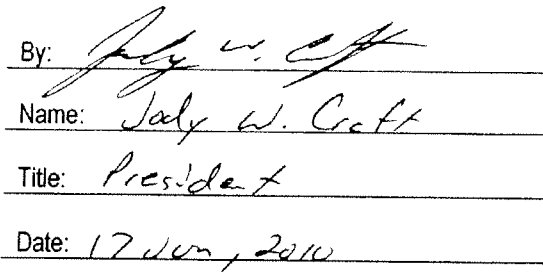 By: Jody W. Craft
Name: Jody W. Craft
Title: President
Date: 17 Jun, 2010